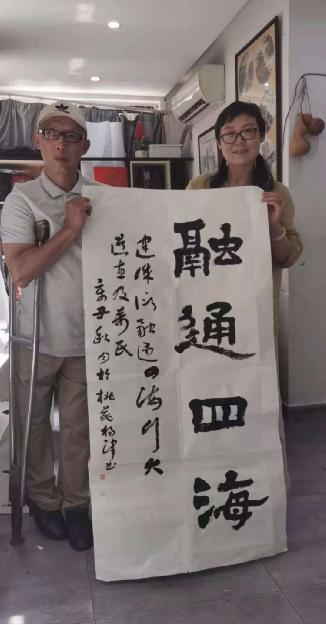 融通四海
建 融通四海行大
道惠及萬民
辛丑秋月於桃 書